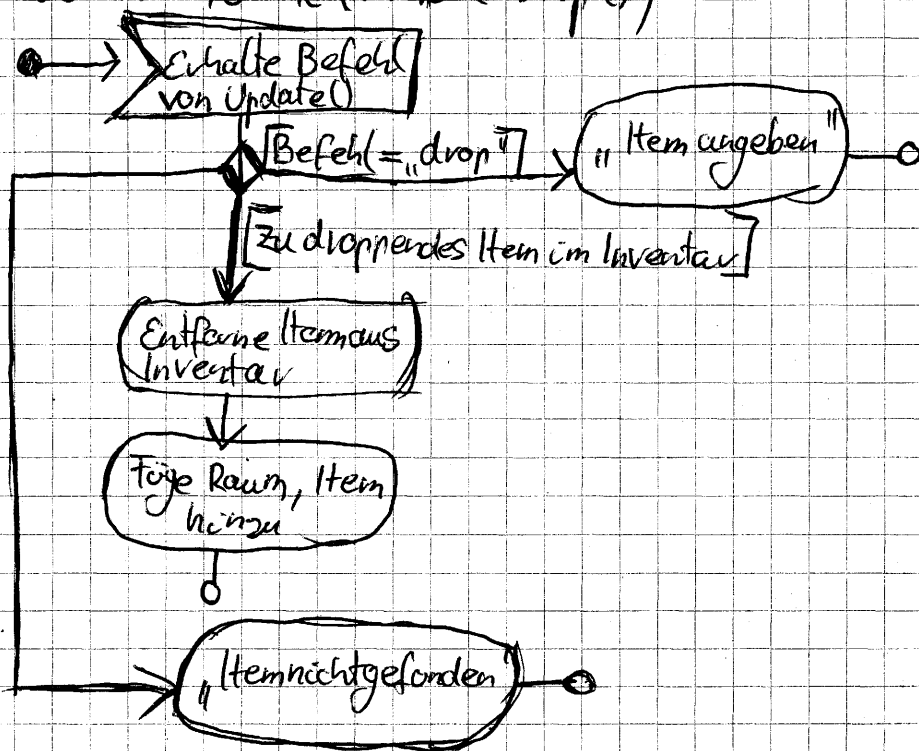 Erhalte Befehl
von Update()
[Befehl = „drop"]
„Item angeben"
[Zu droppendes Item im Inventar]
Entferne Item aus
Inventar
Füge Raum, Item
hinzu
„Item nicht gefunden"